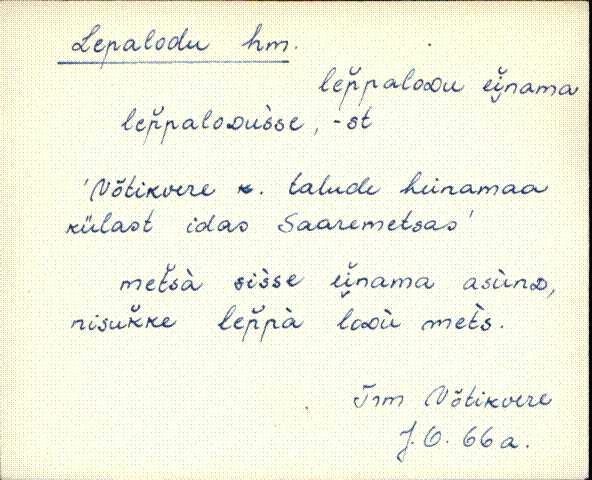 Lepalodu hm.
lep̆paloᴅu ei̯nama
lep̆paloᴅùsse, -st
'Võtikvere k. talude heinamaa
külast idas Saaremetsas'
met̆sà sìsse ei̯nama asùnᴅ,
nisuk̆ke lep̆pà loᴅù met̀s.
Trm Võtikvere
J. O. 66 a.